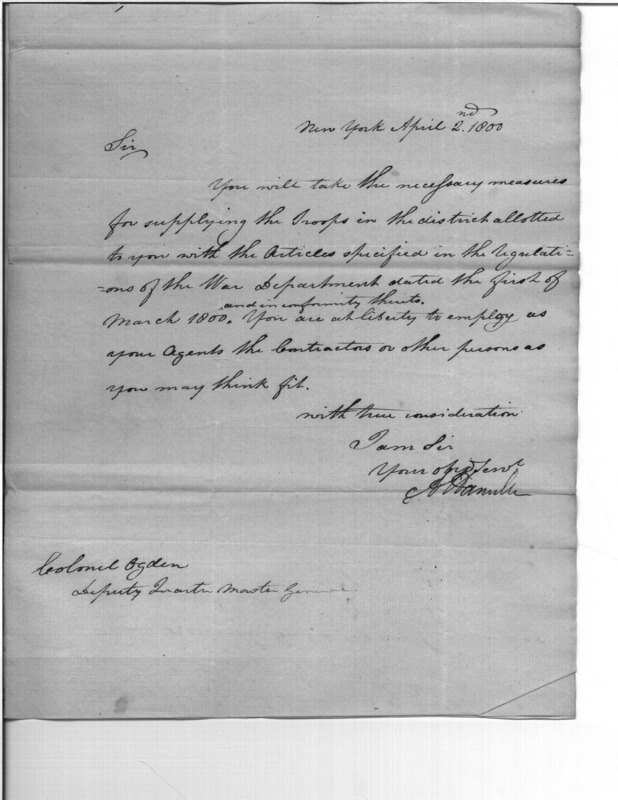 New York April 2.nd 1800
Sir
You will take the necessary measures
for supplying the Troops in the district allotted
to you with the Articles specified in the regulati-
-ons of the War Department dated the first of
and in conformity thereto.
March 1800. You are at liberty to employ as
your Agents the Contractors or other persons as
you may think fit.
with true consideration
I am Sir
Your obed Servt
A Hamilton
Colonel Ogden
Deputy Quarter Master General